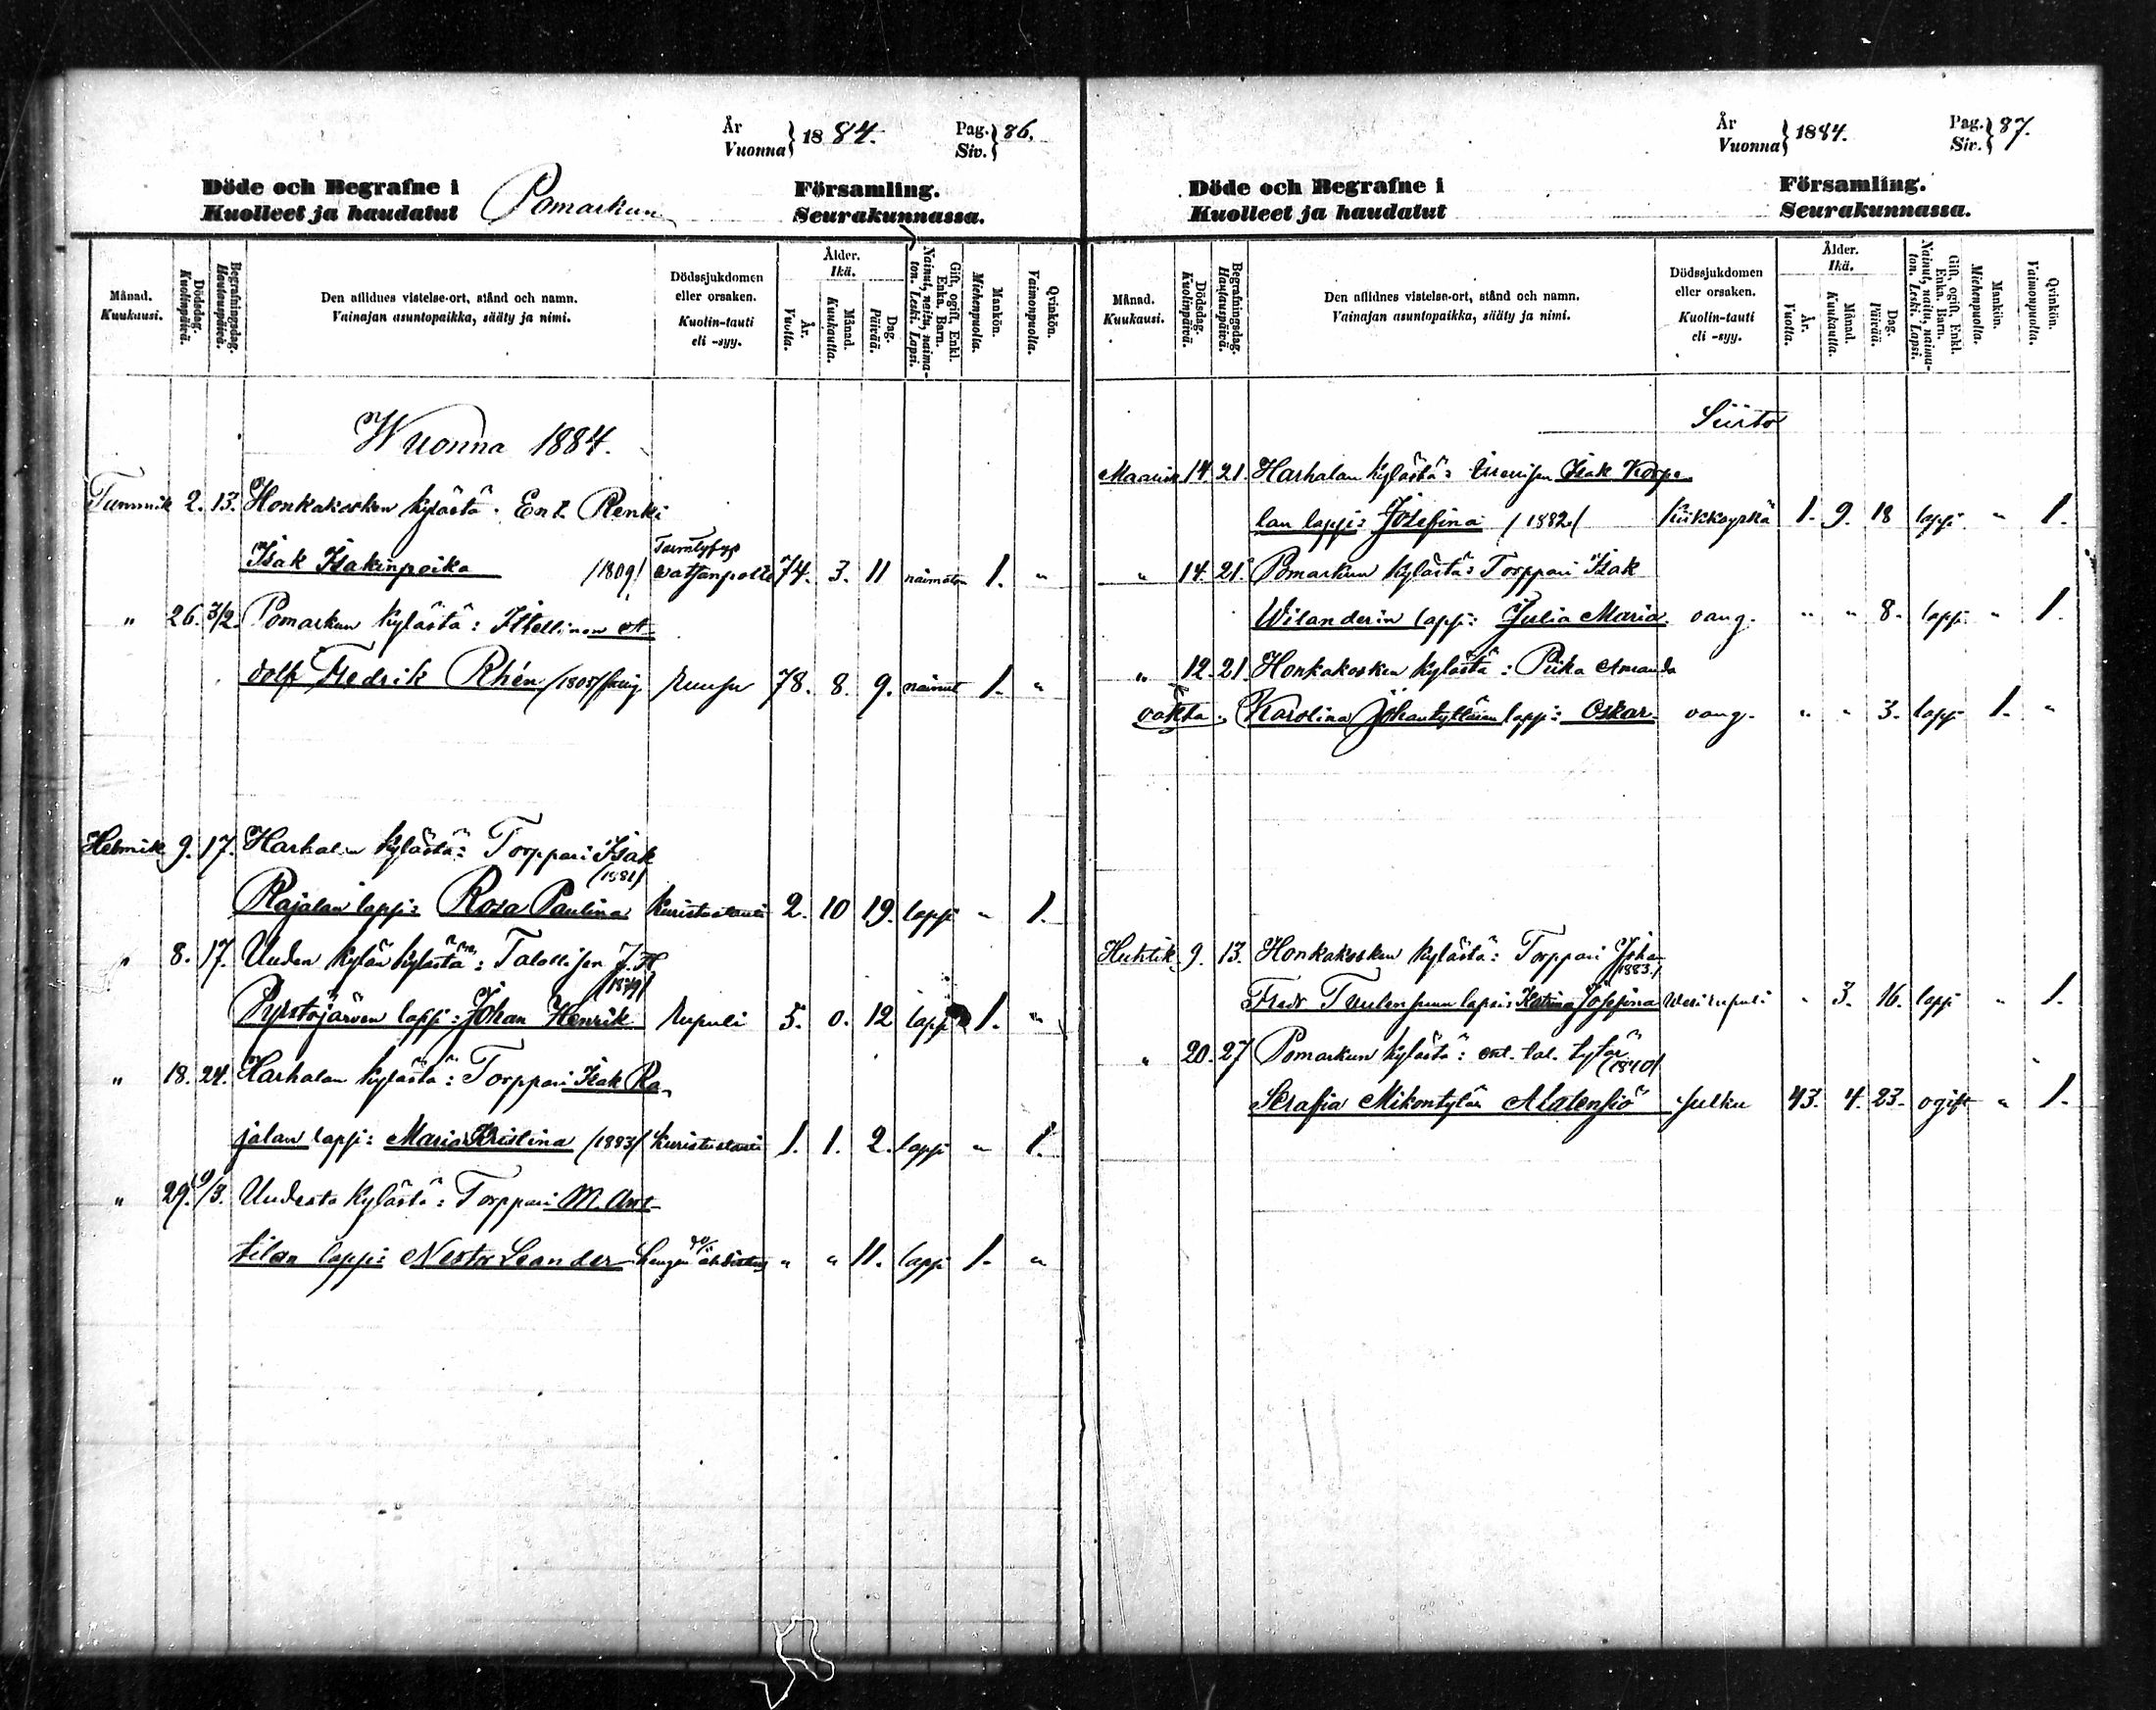 År
Vuonna } 1884.
Pag.
Siv. } 86.
Döde och Begrafne i Pomarkun Församling.
Kuolleet ja haudatut Seurakunnassa.
Månad. Kuukausi.
Dödsdag. Kuolinpäivä.
Begrafningsdag. Hautauspäivä.
Den aflidnes vistelse-ort, stånd och namn.
Vainajan asuntopaikka, sääty ja nimi.
Dödssjukdomen eller orsaken.
Kuolin-tauti eli -syy.
Ålder. Ikä.
År. Vuotta.
Månad. Kuukautta.
Dag. Päivää.
Gift, ogift, Enkl. Enka. Barn.
Nainut, naitu, naimaton. Leski. Lapsi.
Mankön. Miehenpuolta.
Qvinkön. Vaimonpuolta.
Wuonna 1884.
Tammik 2. 13. Honkakosken kylästä: Ent. Renki
Isak Isakinpoika /1809/ watsanpolte 74. 3. 11 naimaton 1. "
" 26. 3/2. Pomarkun kylästä: Itsellinen A-
dolf Fredrik Rhén /1805/ 78. 8. 9. nainut 1. "
Helmik 9. 17. Harhalan kylästä: Torppari Isak
/1881/
Rajalan lapsi: Rosa Paulina Kuristustauti 2. 10 19. lapsi " 1.
" 8. 17. Uuden kylän kylästä: Talollisen J. H.
/1879/
Pyistöjärven lapsi: Johan Henrik rupuli 5. 0. 12 lapsi 1. "
" 18. 24. Harhalan kylästä: Torppari Isak Ra-
jalan lapsi: Maria Kristina /1883/ Kuristustauti 1. 1. 2. lapsi " 1.
" 29. 9/3. Uudesta kylästä: Torppari M. Ant-
tilan lapsi: Nestor Leander Hengen ahdistus " " 11. lapsi 1. "
År
Vuonna } 1884.
Pag.
Siv. } 87.
Döde och Begrafne i Församling.
Kuolleet ja haudatut Seurakunnassa.
Månad. Kuukausi.
Dödsdag. Kuolinpäivä.
Begrafningsdag. Hautauspäivä.
Den aflidnes vistelse-ort, stånd och namn.
Vainajan asuntopaikka, sääty ja nimi.
Dödssjukdomen eller orsaken.
Kuolin-tauti eli -syy.
Ålder. Ikä.
År. Vuotta.
Månad. Kuukautta.
Dag. Päivää.
Gift, ogift, Enkl. Enka. Barn.
Nainut, naitu, naimaton. Leski. Lapsi.
Mankön. Miehenpuolta.
Qvinkön. Vaimonpuolta.
Siirto
Maalisk 14. 21. Harhalan kylästä: Isak Korpe-
lan lapsi: Josefina /1882/ Hinkkayskä 1. 9. 18 lapsi " 1.
" 14. 21. Pomarkun kylästä: Torppari Isak
Wilanderin lapsi: Julia Maria. vang. " " 8. lapsi " 1.
" 12. 21. Honkakosken kylästä: Piika Amanda
Karolina Juhantyttären lapsi: Oskar. vang. " " 3. lapsi 1. "
Huhtik. 9. 13. Honkakosken kylästä: Torppari Johan
/1883/
Fredr Tuulensuun lapsi: Katrina Josefina Weri rupuli " 3. 16. lapsi " 1.
" 20. 27 Pomarkun kylästä: ent. tal. tytär
/1840/
Serafia Mikontytär Alatensiö 43. 4. 23. ogift " 1.